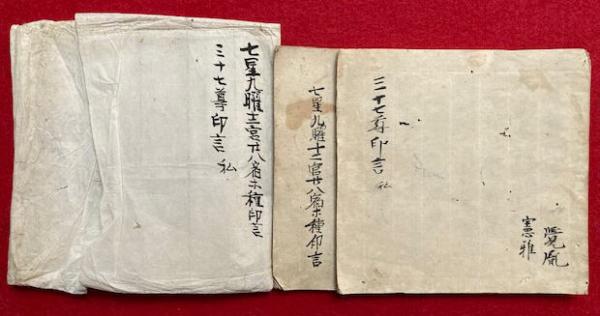 覺
憲雅
三十七尊印言 私
七星九曜十二宮廿八宿ホ種印言
七星九曜十二宮廿八宿ホ種印言
三十七尊印言 私